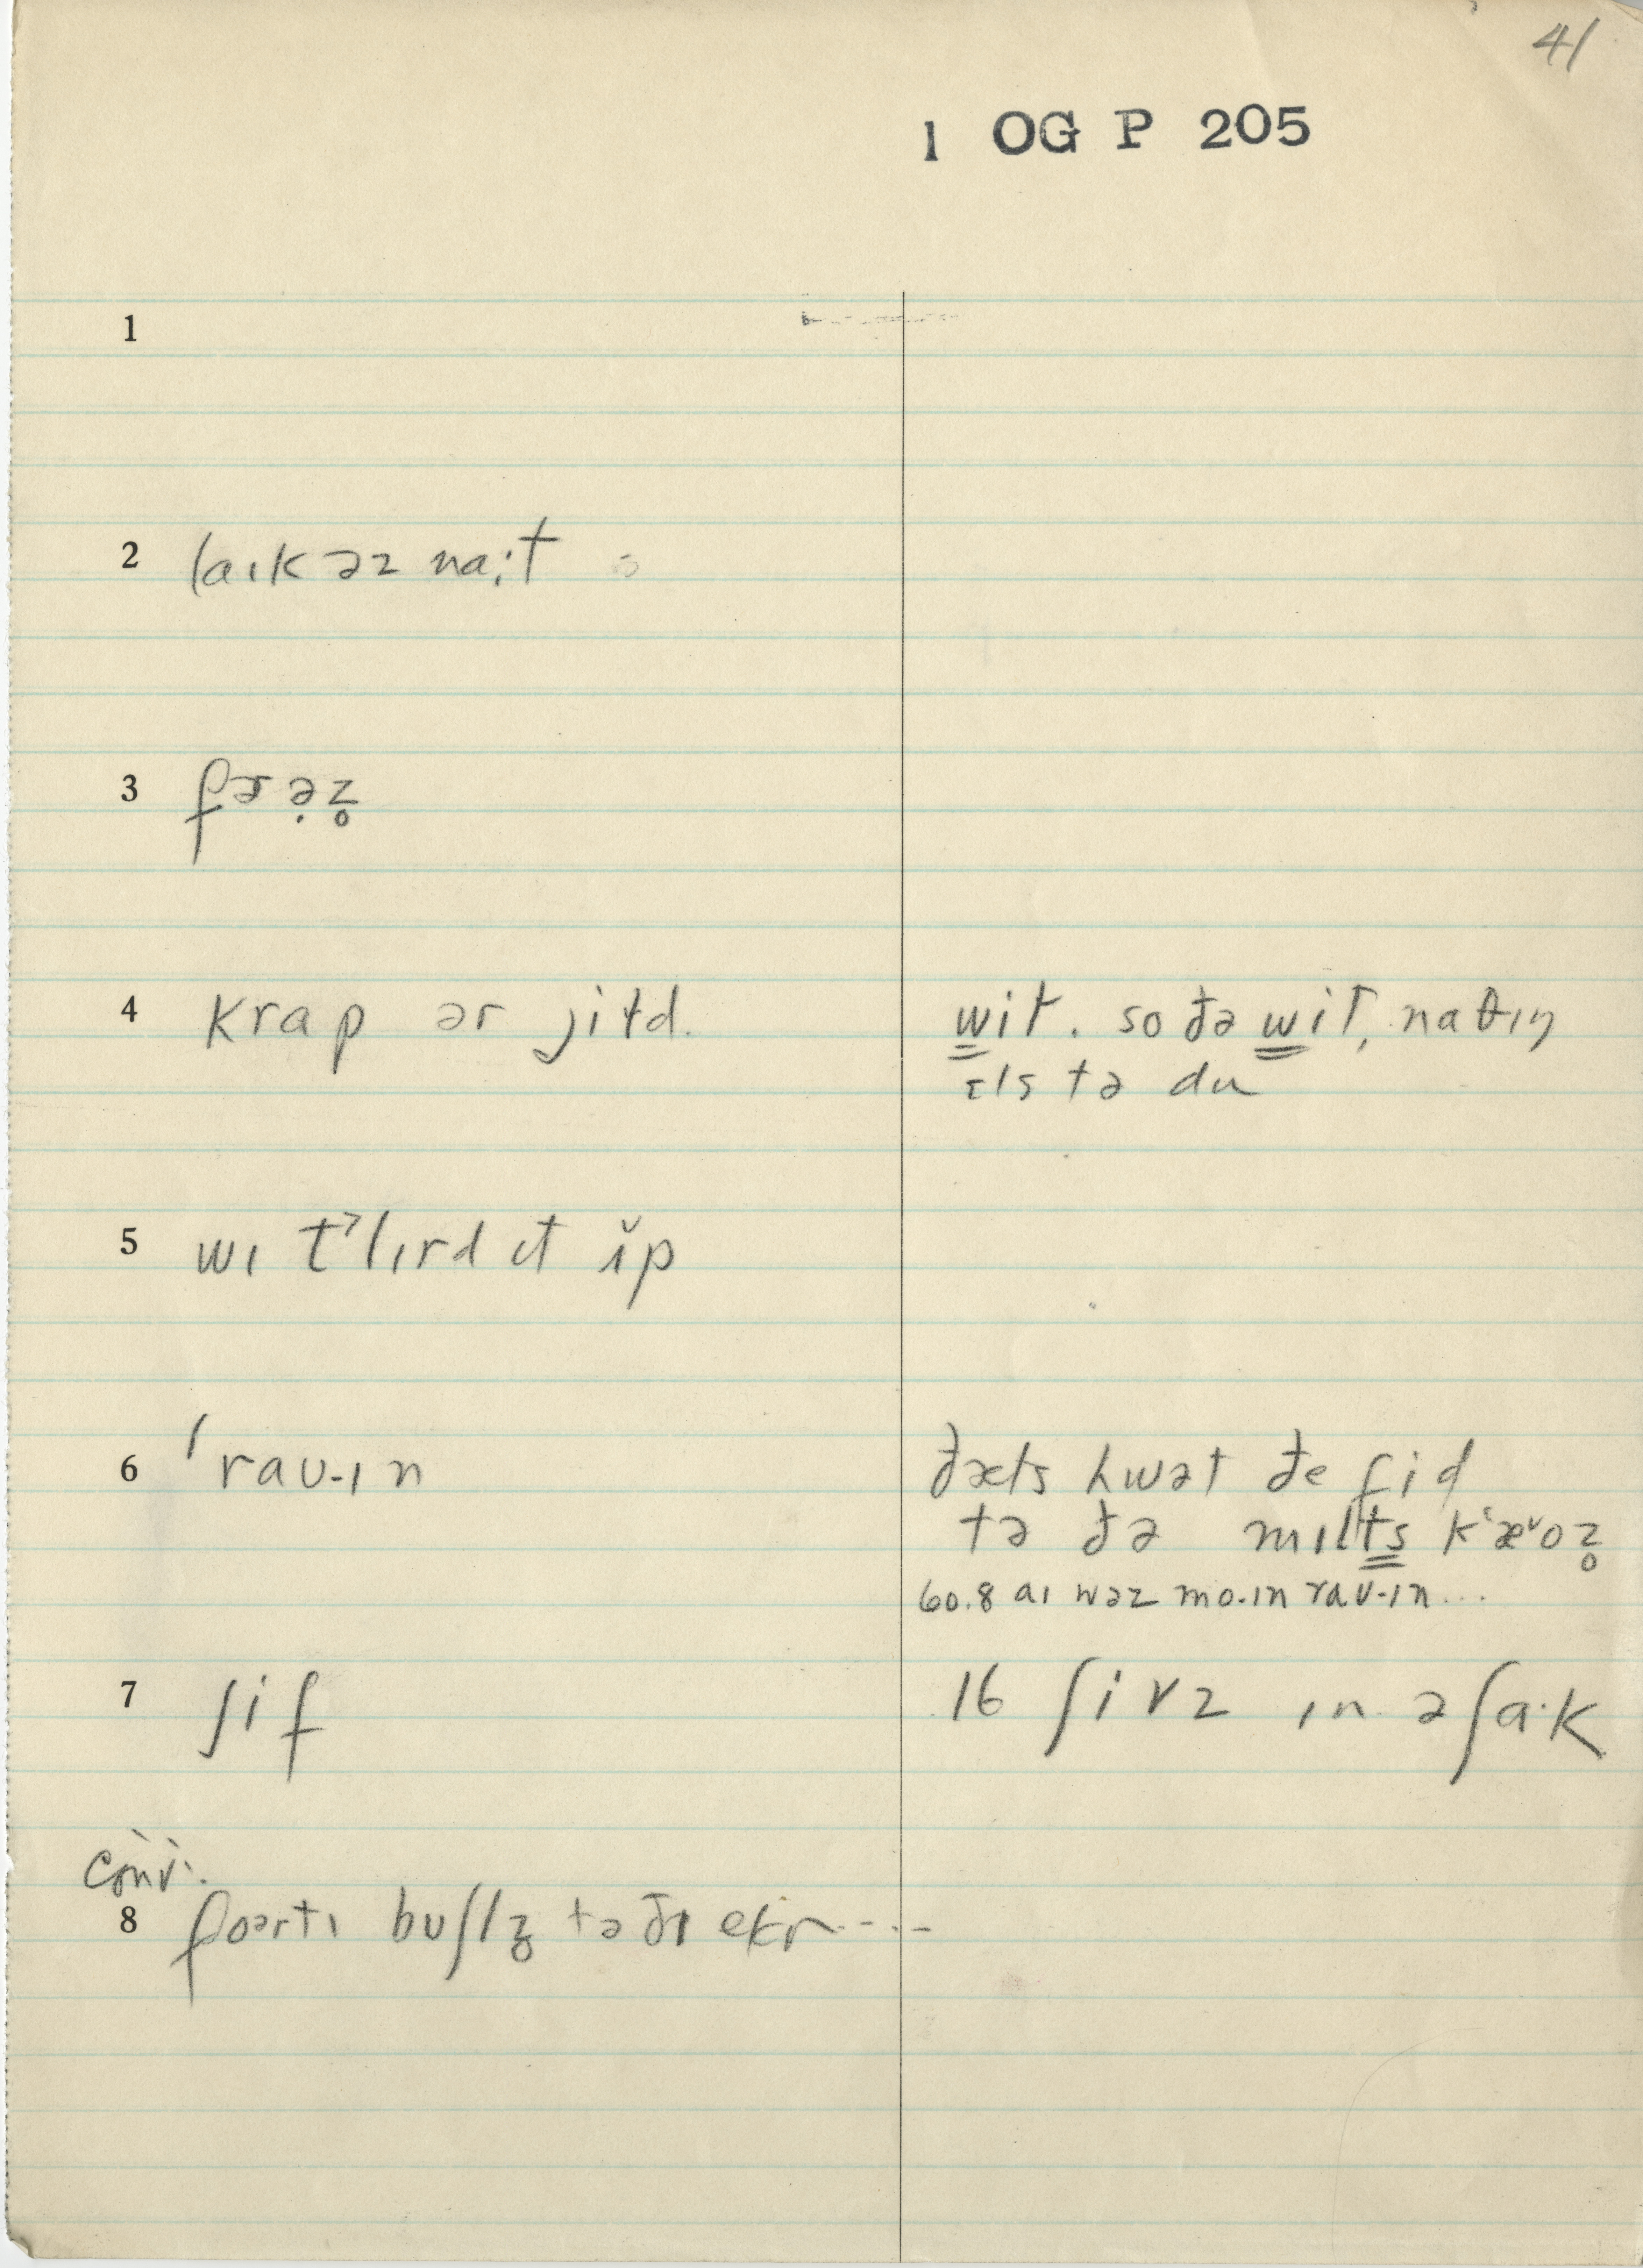 41
1 OG P 205
1
2 laɪk əz naɪ;t
3 fɚ ə̣ z̥
4 krap ər jitd.
w̳it. so ðə w̳it, naθɪŋ
ɛls tə du
5 wɪ t'lɪrd ɪt ɨ̌p
6 'raʊ-ɪn
ðæts hwət ðe fid
tə ðə mɪlt̳s̳ k'æ˅oz̥
60.8 aɪ wəz mo.ɪn raʊ-ɪn...
7 ʃif
16 ʃivz ɪn ə ʃa·k
conv.
8 foərtɪ bʊʃlz̥ tə ðɪ ekr----